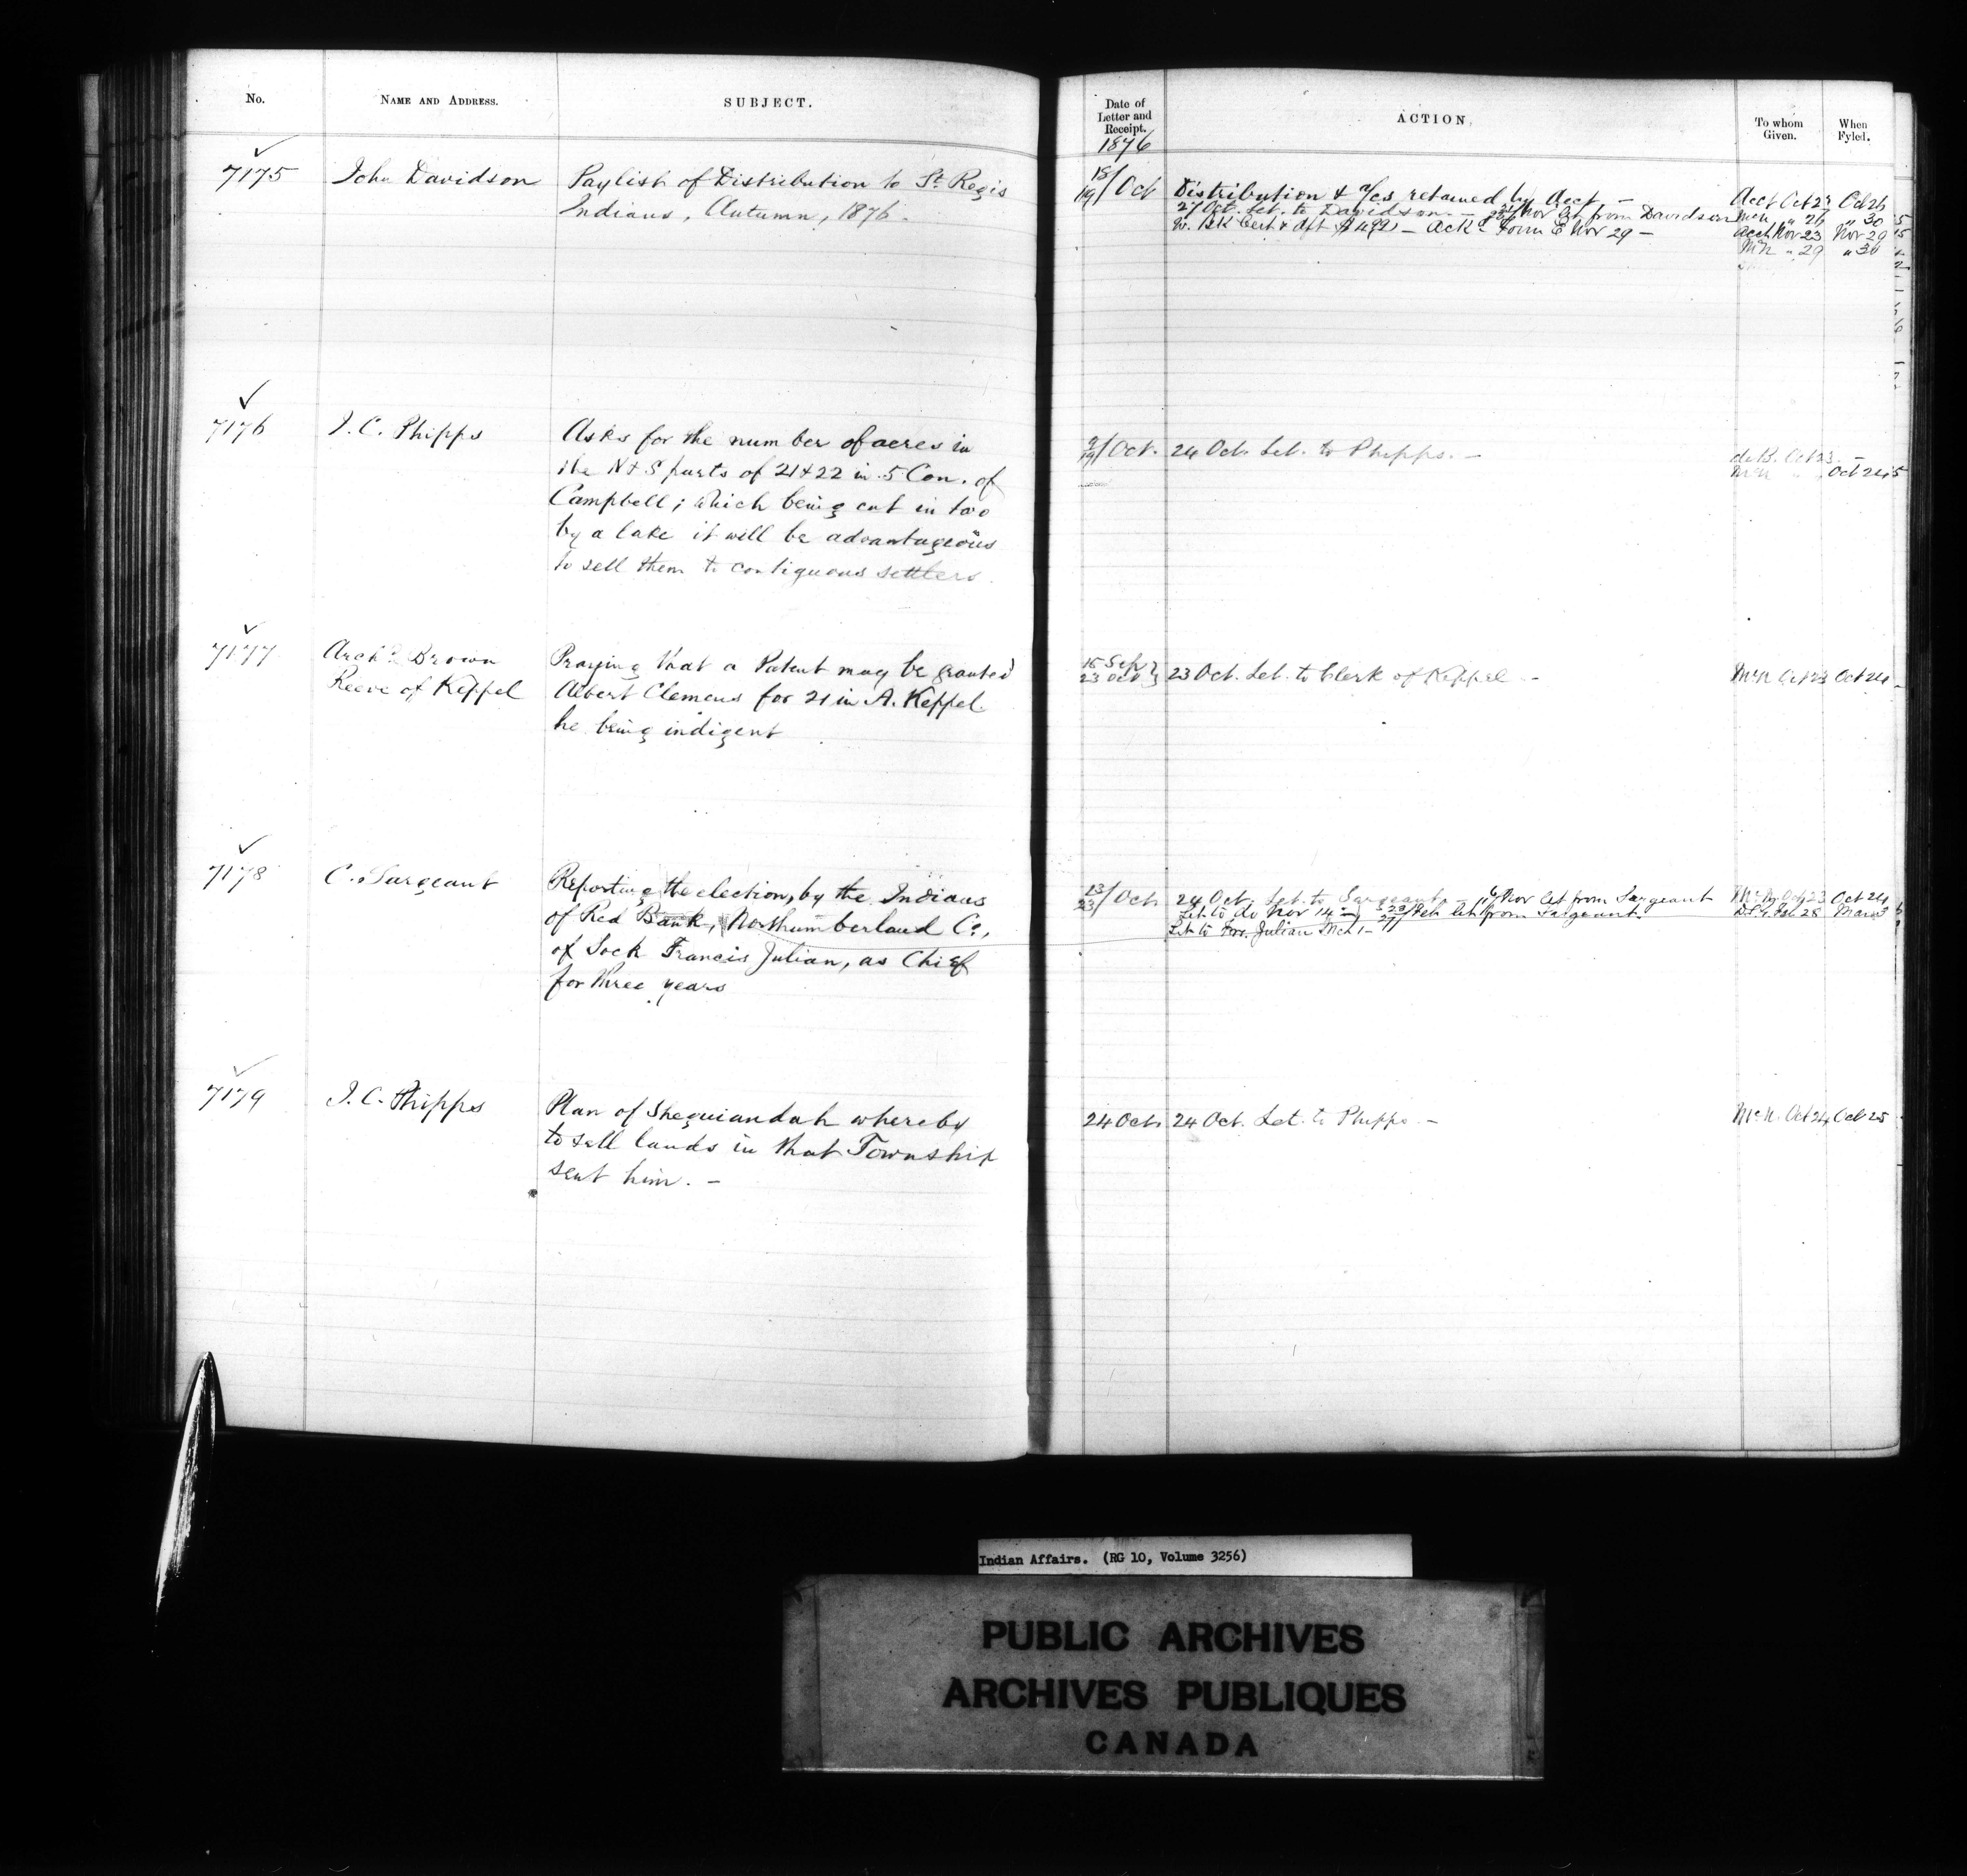 No.
NAME AND ADDRESS.
SUBJECT.
7175
John Davidson
Paylist of Distribution to St. Regis
Indians, Autumn, 1876.
7176
J. C. Phipps
Asks for the number of acres in
the N & S parts of 21 & 22 in 5 Con. of
Campbell; which being cut in two
by a lake it will be advantageous
to sell them to contiguous settlers.
7177
Archd. Brown
Reeve of Keppel
Praying that a Patent may be granted
Albert Clemens for 21 in A. Keppel.
he being indigent
7178
C. Sargeant
Reporting the election, by the Indians
of Red Bank, Northumberland Co.,
of Sock Francis Julian, as Chief
for three years
7179
J. C. Phipps
Plan of Sheguiandah whereby
to sell lands in that Township
sent him. —
Date of
Letter and
Receipt.
ACTION.
To whom
Given.
When
Fyled.
1876
18/19 Oct
Distribution & a/cs retained by Acct —
27 Oct. Let. to Davidson. — Nov Let from Davidson
Cert & Aft — Ack. Form E Nov 29 —
Acct Oct 23 Oct 26
McN " 26 " 30
Acct Nov 23 Nov 29
McN " 29 " 30
9/19 Oct.
24 Oct. Let. to Phipps. —
de B. Oct 23. —
McN " Oct 24
15 Sep
23 Oct
23 Oct. Let. to Clerk of Keppel —
McN Oct 23 Oct 24
13/23 Oct
24 Oct. Let. to Sargeant — Nov Let from Sargeant
Let to do Nov 14 — 23/27 Feb let from Sargeant
Let to Julian Mch 1 —
McN. Oct 23 Oct 24
Feb 28 Mar 3
24 Oct.
24 Oct. Let. to Phipps —
McN. Oct 24 Oct 25
Indian Affairs. (RG 10, Volume 3256)
PUBLIC ARCHIVES
ARCHIVES PUBLIQUES
CANADA